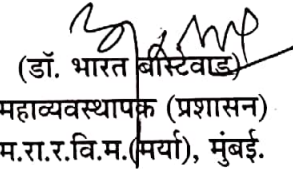 (डॉ. भारत बास्टेवाड)
महाव्यवस्थापक (प्रशासन)
म.रा.र.वि.म.(मर्या), मुंबई.